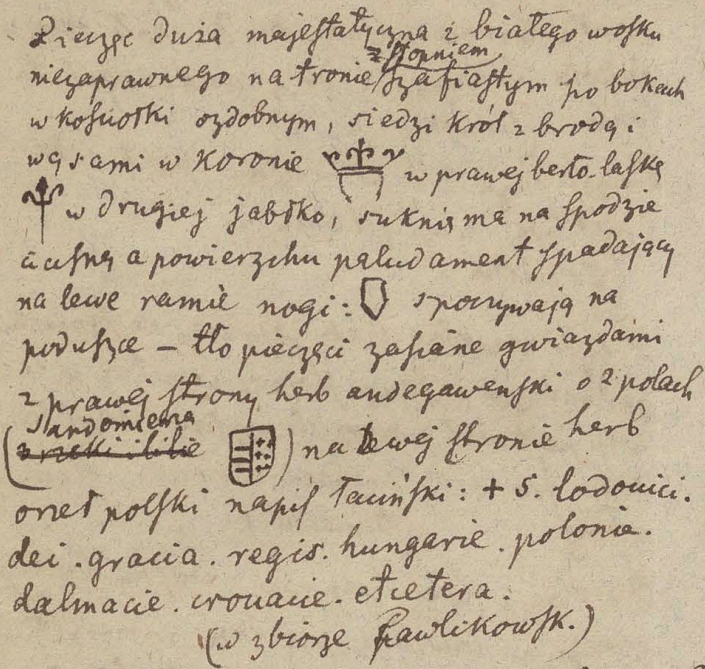 Pieczęć duża majestatyczna z białego wosku
z stopniem
niezaprawnego na tronie szafiastym po bokach
w kosciołki ozdobnym, siedzi król z brodą i
wąsami w koronie w prawej berło-laskę
w drugiej jabłko, suknię ma na spodzie
ciasną a powierzchu paludament spadający
na lewe ramie nogi: spoczywają na
poduszce – tło pieczęci zasiane gwiazdami
z prawej strony herb andegawenski o 2 polach
Sandomierza
( ) na lewej stronie herb
orzeł polski napis łaciński: + S. lodovici.
dei . gracia . regis . hungarie . polonie .
dalmacie . crouacie . etcetera .
(w zbiorze Pawlikowsk.)